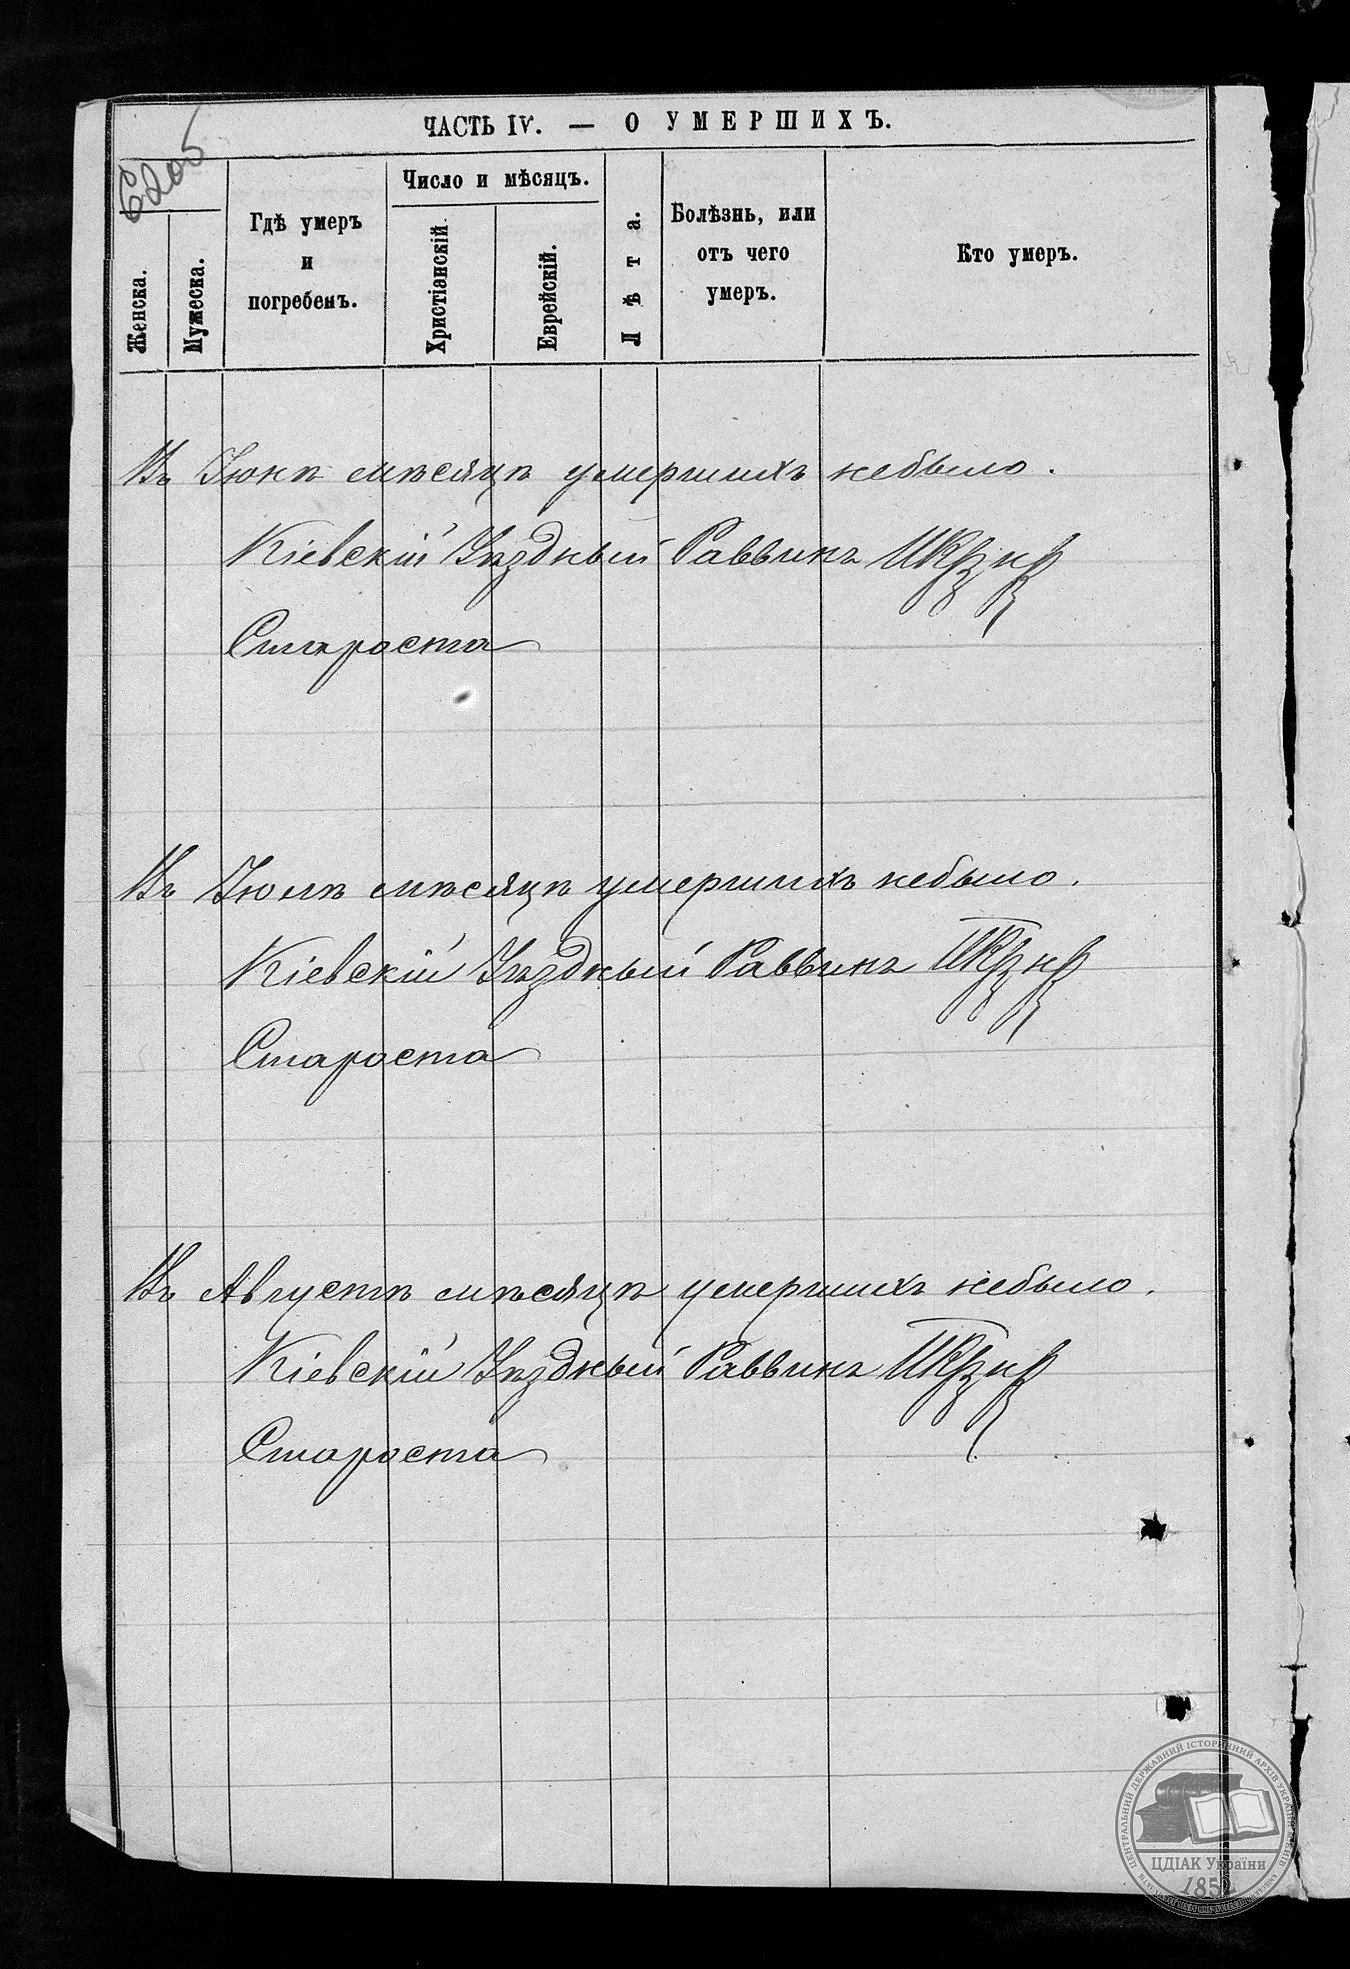 ЧАСТЬ IV. — О УМЕРШИХЪ.
Женска.
Мужеска.
Гдѣ умеръ
и
погребенъ.
Число и мѣсяцъ.
Христіанскій
Еврейскій.
Лѣта.
Болѣзнь, или
отъ чего
умеръ.
Кто умеръ.
Въ Іюнѣ мѣсяцѣ умершихъ небыло.
Кіевскій Уѣздный Раввинъ
Староста
Въ Іюлѣ мѣсяцѣ умершихъ небыло.
Кіевскій Уѣздный Раввинъ
Староста
Въ Августѣ мѣсяцѣ умершихъ небыло.
Кіевскій Уѣздный Раввинъ
Староста
ЦЕНТРАЛЬНИЙ ДЕРЖАВНИЙ ІСТОРИЧНИЙ АРХІВ УКРАЇНИ
ЦДІАК України
1852